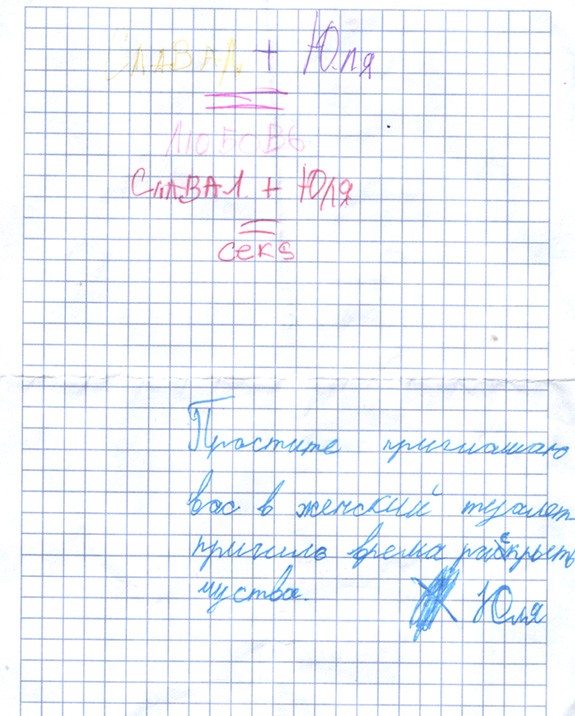 СЛАВА Л. + Юля
=
ЛЮБОВЬ
СЛАВА Л. + Юля
=
секs
Простите приглашаю
вас в женский туалет
пришло время раскрыть
чуства.
Юля